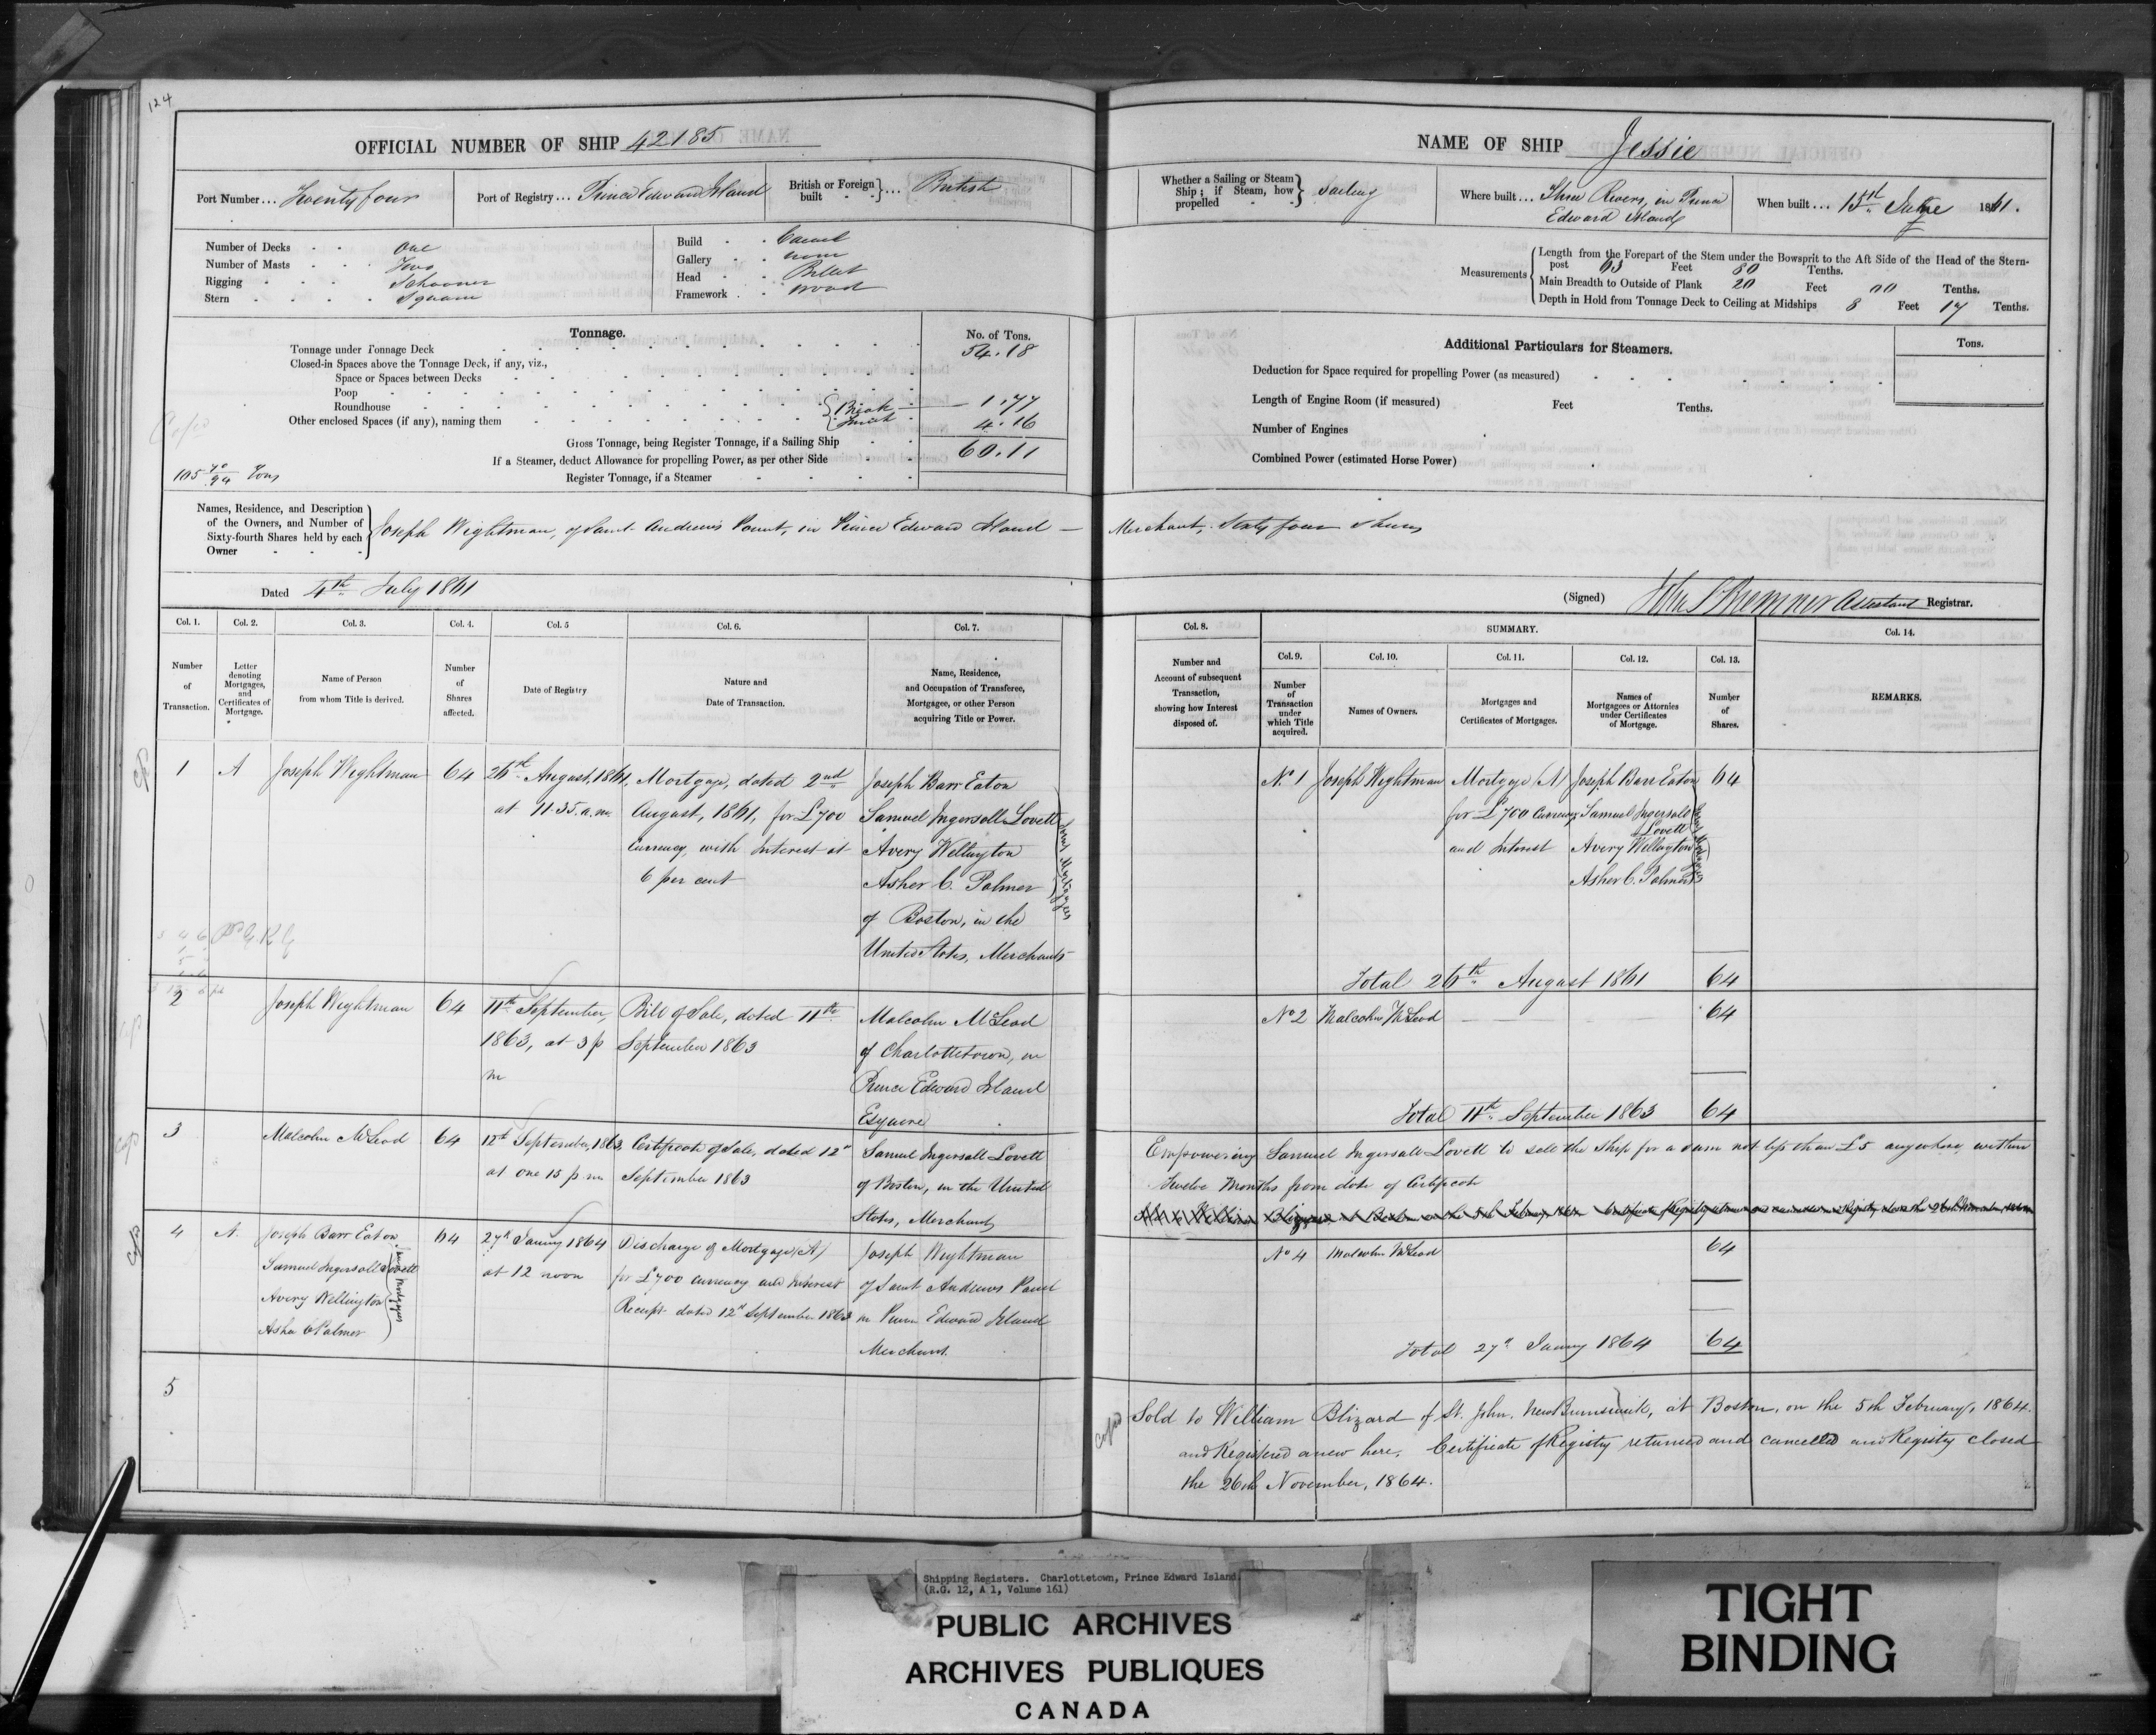 124
OFFICIAL NUMBER OF SHIP 42185
Port Number... Twenty four
Port of Registry... Prince Edward Island
British or Foreign built } ... British
Number of Decks One
Number of Masts Two
Rigging Schooner
Stern Square
Build Carvel
Gallery none
Head Billet
Framework Wood
Tonnage.
No. of Tons.
Tonnage under Tonnage Deck 54.18
Closed-in Spaces above the Tonnage Deck, if any, viz.,
Space or Spaces between Decks
Poop
Roundhouse { Break 1.77
Other enclosed Spaces (if any), naming them 4.16
Gross Tonnage, being Register Tonnage, if a Sailing Ship 60.11
If a Steamer, deduct Allowance for propelling Power, as per other Side
105 70/94 Tons
Register Tonnage, if a Steamer
Names, Residence, and Description of the Owners, and Number of Sixty-fourth Shares held by each Owner } Joseph Wightman, of Saint Andrews Point, in Prince Edward Island —
Dated 4th July 1861
Col. 1. Col. 2. Col. 3. Col. 4. Col. 5 Col. 6. Col. 7.
Number of Transaction.
Letter denoting Mortgages, and Certificates of Mortgage.
Name of Person from whom Title is derived.
Number of Shares affected.
Date of Registry
Nature and Date of Transaction.
Name, Residence, and Occupation of Transferee, Mortgagee, or other Person acquiring Title or Power.
1 A Joseph Wightman 64 26th August, 1861, at 11.35. a.m. Mortgage, dated 2nd August, 1861, for £700 Currency, with Interest at 6 per cent
Joseph Barr Eaton
Samuel Ingersoll Lovett
Avery Wellington
Asher C. Palmer
Joint Mortgagees
of Boston, in the
United States, Merchants
2 Joseph Wightman 64 11th September, 1863, at 3 p m Bill of Sale, dated 11th September 1863
Malcolm McLeod
of Charlottetown, in
Prince Edward Island
Esquire
3 Malcolm McLeod 64 12th September, 1863, at one 15 p.m Certificate of Sale, dated 12th September 1863
Samuel Ingersoll Lovett
of Boston, in the United
States, Merchant
4 A. Joseph Barr Eaton
Samuel Ingersoll Lovett
Avery Wellington
Asher C Palmer
Joint Mortgagees
64 27th January 1864 at 12 noon Discharge of Mortgage (A) for £700 currency and Interest Receipt dated 12th September 1863
Joseph Wightman
of Saint Andrews Point
in Prince Edward Island
Merchant.
5
NAME OF SHIP Jessie
Whether a Sailing or Steam Ship; if Steam, how propelled } Sailing
Where built... Three Rivers, in Prince Edward Island
When built... 13th June 1861.
Measurements
Length from the Forepart of the Stem under the Bowsprit to the Aft Side of the Head of the Stern-
post 63 Feet 80 Tenths.
Main Breadth to Outside of Plank 20 Feet 00 Tenths.
Depth in Hold from Tonnage Deck to Ceiling at Midships 8 Feet 17 Tenths.
Additional Particulars for Steamers.
Tons.
Deduction for Space required for propelling Power (as measured)
Length of Engine Room (if measured) Feet Tenths.
Number of Engines
Combined Power (estimated Horse Power)
Merchant, Sixty four Shares
(Signed) Assistant Registrar.
Col. 8. SUMMARY. Col. 14.
Col. 9. Col. 10. Col. 11. Col. 12. Col. 13.
Number and Account of subsequent Transaction, showing how Interest disposed of.
Number of Transaction under which Title acquired.
Names of Owners.
Mortgages and Certificates of Mortgages.
Names of Mortgagees or Attornies under Certificates of Mortgage.
Number of Shares.
REMARKS.
No. 1 Joseph Wightman Mortgage (A) for £700 Currency and Interest
Joseph Barr Eaton
Samuel Ingersoll Lovett
Avery Wellington
Asher C. Palmer
Joint Mortgagees
64
Total 26th August 1861 64
No 2 Malcolm McLeod — — 64
Total 11th September 1863 64
Empowering Samuel Ingersoll Lovett to sell the Ship for a sum not less than £5 anywhere, within
Twelve Months from date of Certificate
No 4 Malcolm McLeod 64
Total 27th January 1864 64
Copied
Sold to William Blizard of St. John, New Brunswick, at Boston, on the 5th February, 1864.
and Registered anew here. Certificate of Registry returned and cancelled and Registry closed
the 26th November, 1864.
Shipping Registers. Charlottetown, Prince Edward Island.
(R.G. 12, A 1, Volume 161)
PUBLIC ARCHIVES
ARCHIVES PUBLIQUES
CANADA
TIGHT
BINDING